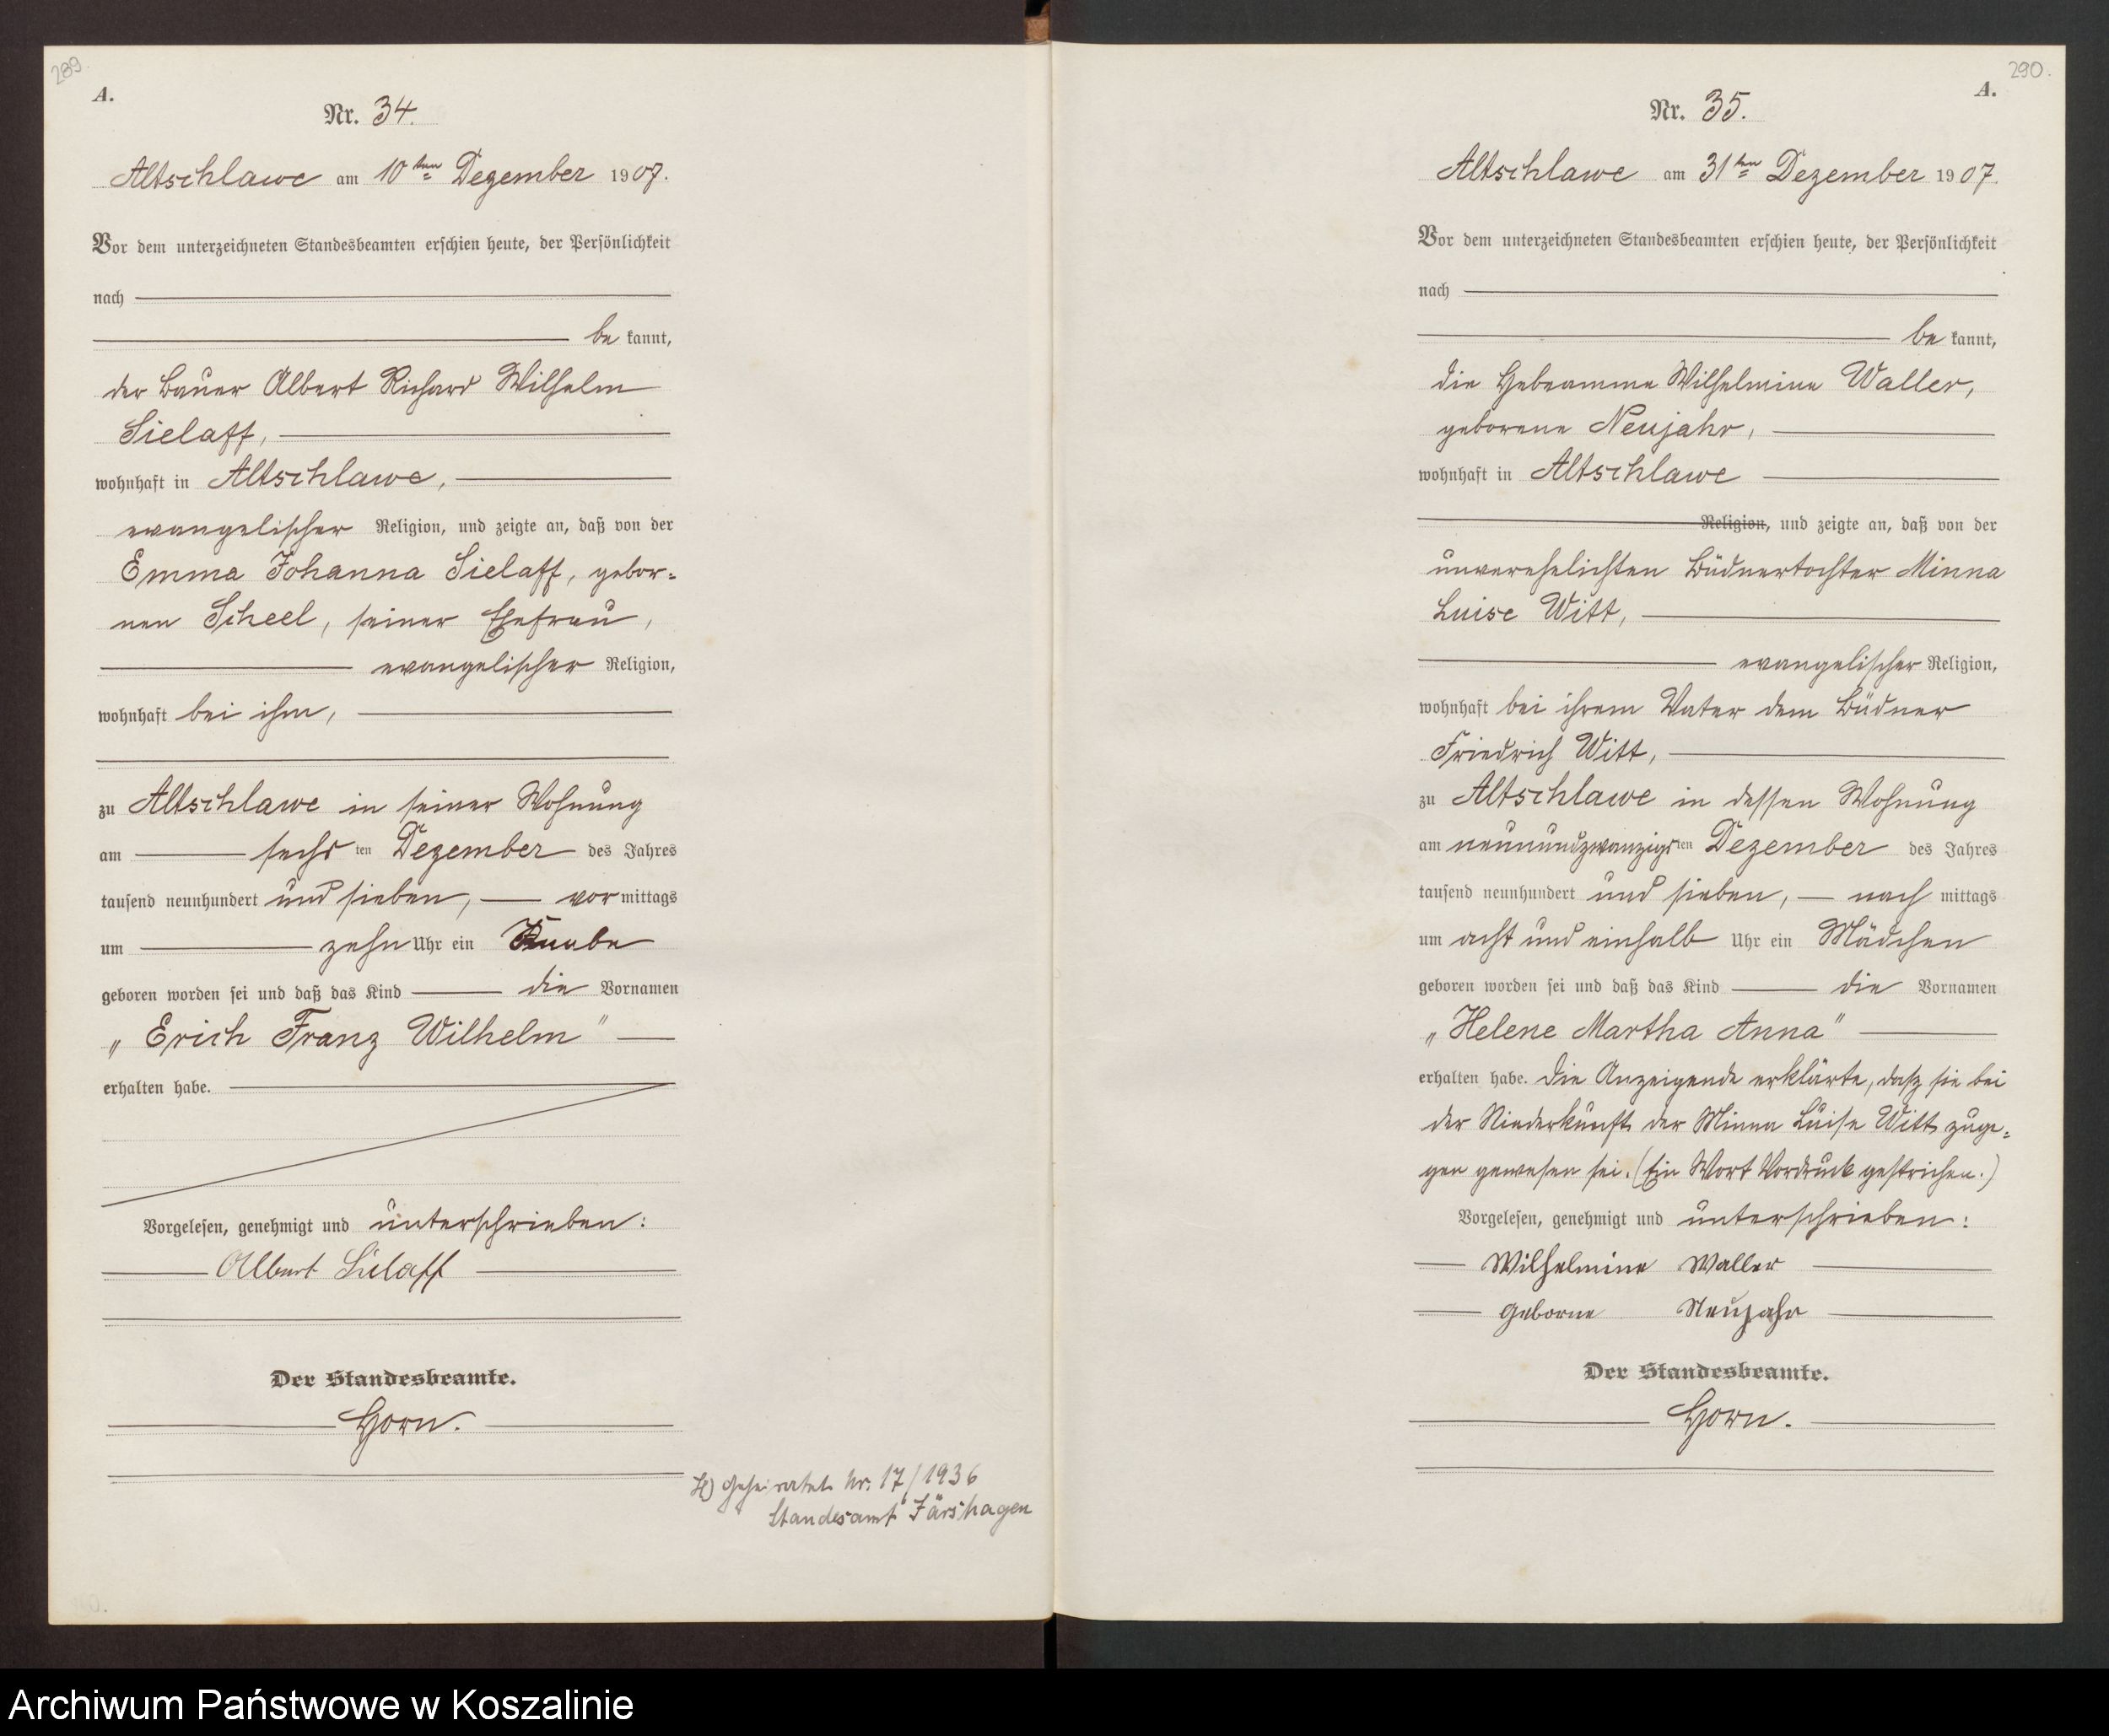 289.
A.
Nr. 34.
Altschlawe am 10ten Dezember 1907.
Vor dem unterzeichneten Standesbeamten erschien heute, der Persönlichkeit
nach
be kannt,
der Bauer Albert Richard Wilhelm
Sielaff,
wohnhaft in Altschlawe,
evangelischer Religion, und zeigte an, daß von der
Emma Johanna Sielaff, gebor=
nen Scheel, seiner Ehefrau,
evangelischer Religion,
wohnhaft bei ihm,
zu Altschlawe in seiner Wohnung
am sechsten Dezember des Jahres
tausend neunhundert und sieben, vor mittags
um zehn Uhr ein Knabe
geboren worden sei und daß das Kind die Vornamen
„Erich Franz Wilhelm"
erhalten habe.
Vorgelesen, genehmigt und unterschrieben:
Albert Sielaff
Der Standesbeamte.
Horn.
geheiratet Nr. 17/1936
Standesamt Järshagen
290.
A.
Nr. 35.
Altschlawe am 31ten Dezember 1907.
Vor dem unterzeichneten Standesbeamten erschien heute, der Persönlichkeit
nach
be kannt,
die Hebeamme Wilhelmine Waller,
geborene Neujahr,
wohnhaft in Altschlawe
Religion, und zeigte an, daß von der
unverehelichten Büdnertochter Minna
Luise Witt,
evangelischer Religion,
wohnhaft bei ihrem Vater dem Büdner
Friedrich Witt,
zu Altschlawe in dessen Wohnung
am neunundzwanzigsten Dezember des Jahres
tausend neunhundert und sieben, nach mittags
um acht und einhalb Uhr ein Mädchen
geboren worden sei und daß das Kind die Vornamen
„Helene Martha Anna"
erhalten habe. Die Anzeigende erklärte, daß sie bei
der Niederkunft der Minna Luise Witt zuge=
gen gewesen sei. (Ein Wort Vordruck gestrichen.)
Vorgelesen, genehmigt und unterschrieben:
Wilhelmine Waller
geborne Neujahr
Der Standesbeamte.
Horn.
Archiwum Państwowe w Koszalinie